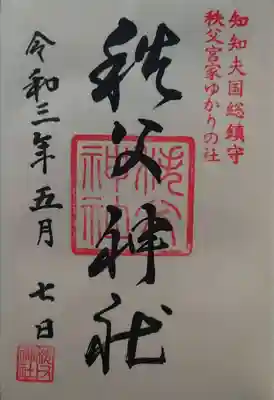 知知夫国総鎮守
秩父宮家ゆかりの社
秩父神社
令和三年五月七日
秩父神社